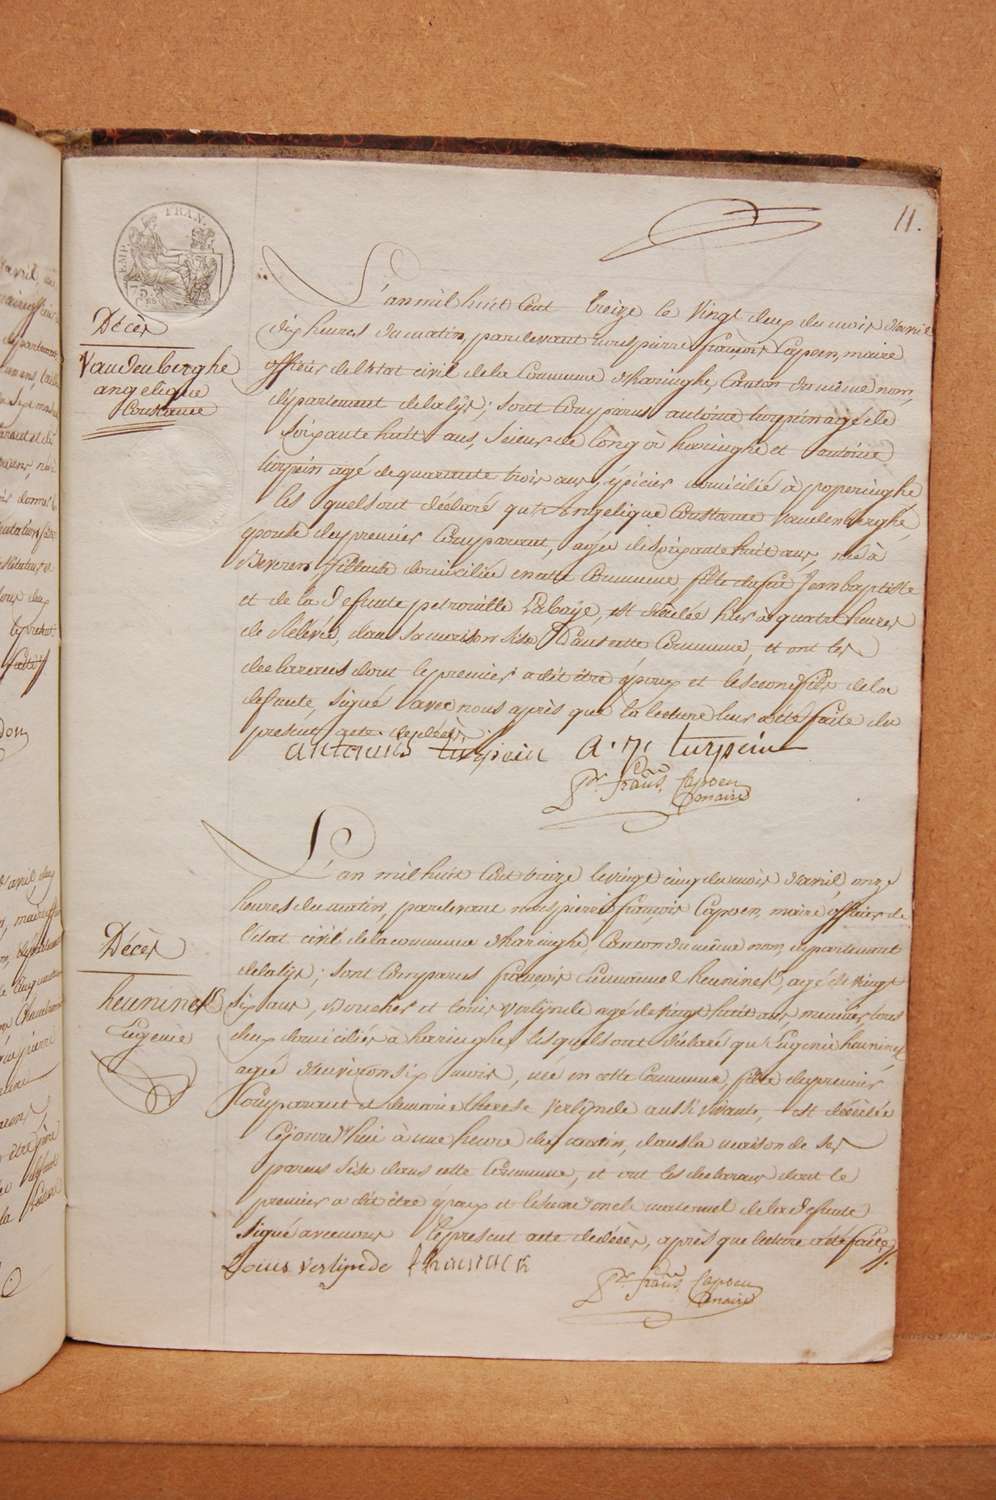 11.
EMP. FRAN.
75 Ces
Décès
Vandenberghe
angelique
Constance
L'an mil huit Cent treize le Vingt deux du mois d'avril
dix heures du matin, pardevant nous pierre françois Capoen, maire
officier de l'Etat civil de la Commune d'haringhe, Canton du même nom,
département de la lys; sont Comparus antoine turpein agé de
Soixante huit ans, Scieur de long à haringhe et antoine
turpein agé de quarante trois ans, épicier domicilié à poperinghe
les quels ont déclaré qu'angelique Constance Vandenberghe,
épouse du premier Comparant, agée de Soixante huit ans, née à
Beveren, fileuse domiciliée en cette Commune fille de feu Jean baptiste
et de la defunte petronille Labaye, est décédée hier à quatre heures
de relevée, dans sa maison sise dans cette Commune, et ont les
declarans dont le premier a dit être époux et le second fils de la
defunte, signé avec nous après que la lecture leur a été faite du
présent acte de décès.
antonius turpein A: n: turpein
Pre franc Capoen
maire
Décès
heuninck
Eugenie
L'an mil huit Cent treize le vingt cinq du mois d'avril, onze
heures du matin, pardevant nous pierre françois Capoen, maire officier de
l'état civil de la commune d'haringhe, Canton du même nom, département
de la lys; sont Comparus françois Emmanuel heuninck, agé de vingt
six ans, Boucher et Louis Verlynde agé de vingt huit ans, meunier tous
deux domiciliés à haringhe, lesquels ont déclaré qu'Eugenie heuninck
agée d'environ six mois, née en cette Commune, fille du premier
Comparant et de marie therese Verlynde aussi vivante, est décédée
Cejourd'hui à une heure du matin, dans la maison de ses
parens sise dans cette Commune, et ont les declarans dont le
premier a dit être époux et le second oncle maternel de la defunte
signé avec nous le présent acte de décès, après que lecture a été faite.
Louis verlynde
Pre franc Capoen
maire